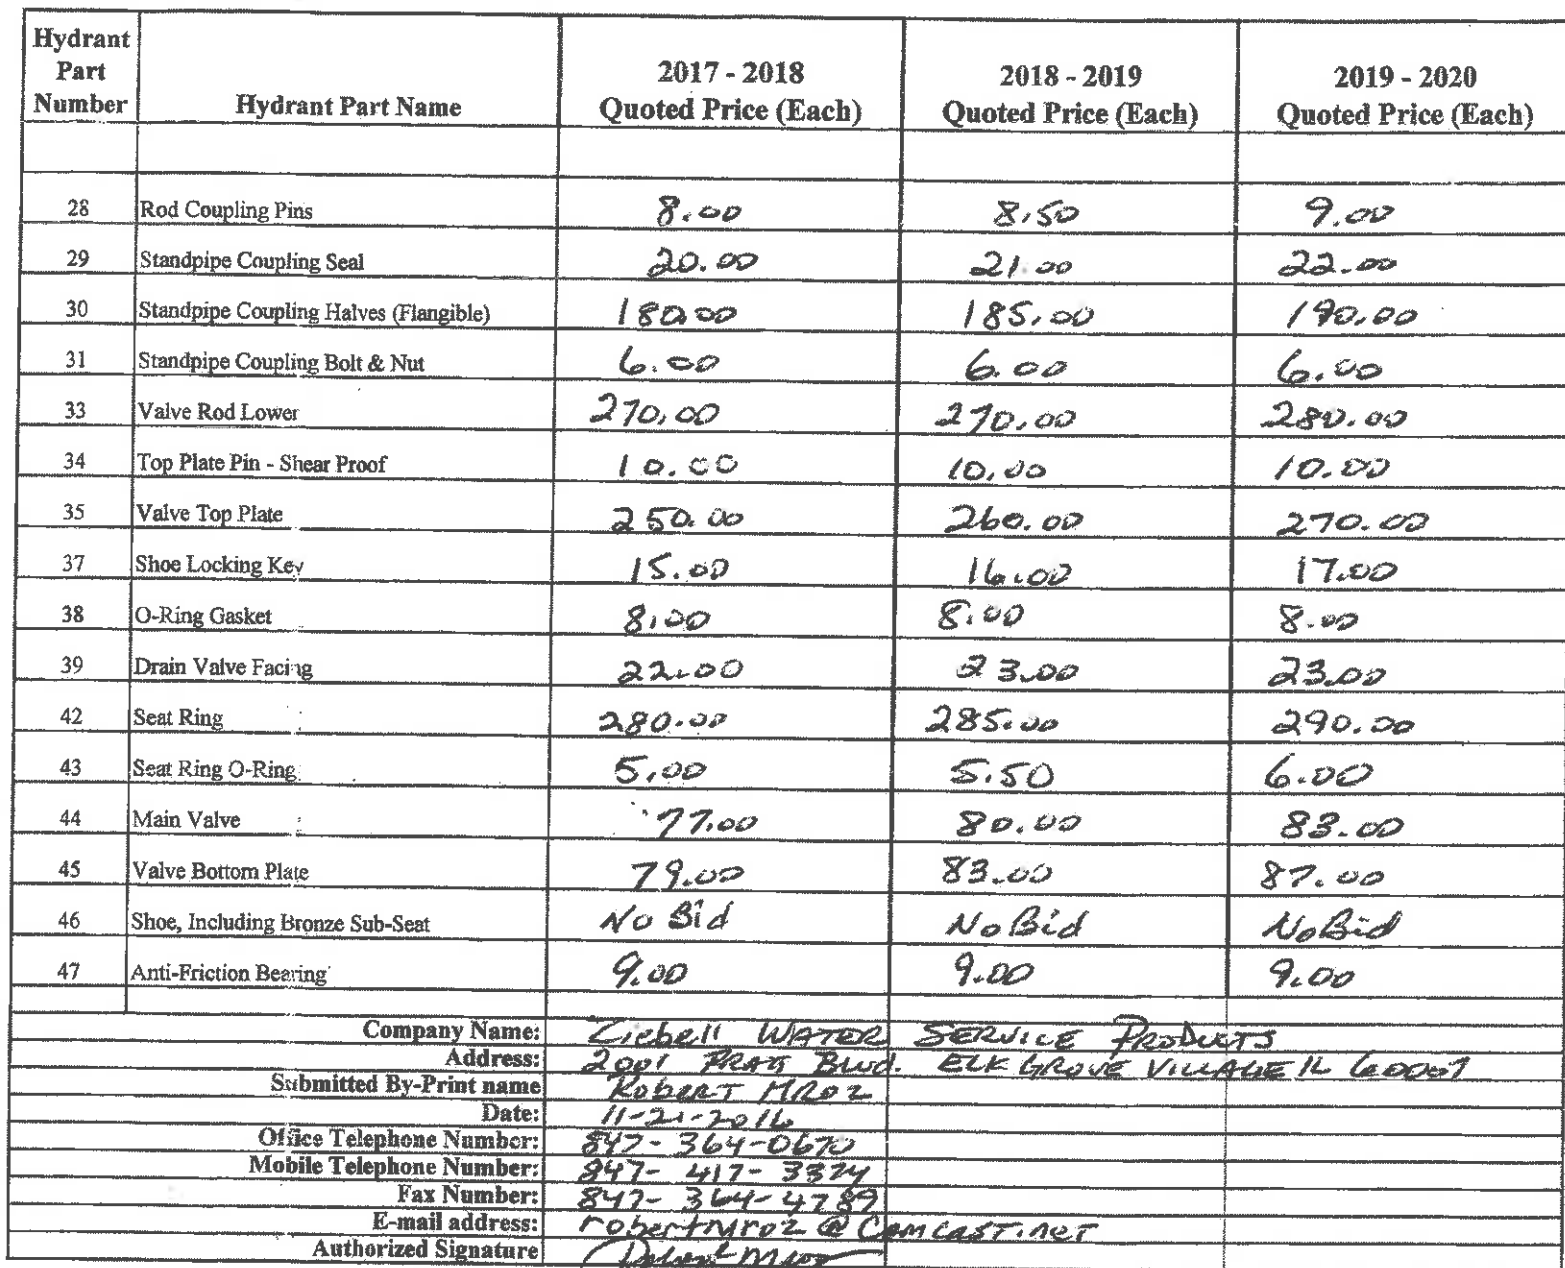 Hydrant
Part
Number Hydrant Part Name 2017 - 2018
Quoted Price (Each) 2018 - 2019
Quoted Price (Each) 2019 - 2020
Quoted Price (Each)
28 Rod Coupling Pins 8.00 8.50 9.00
29 Standpipe Coupling Seal 20.00 21.00 22.00
30 Standpipe Coupling Halves (Flangible) 180.00 185.00 190.00
31 Standpipe Coupling Bolt & Nut 6.00 6.00 6.00
33 Valve Rod Lower 270.00 270.00 280.00
34 Top Plate Pin - Shear Proof 10.00 10.00 10.00
35 Valve Top Plate 250.00 260.00 270.00
37 Shoe Locking Key 15.00 16.00 17.00
38 O-Ring Gasket 8.00 8.00 8.00
39 Drain Valve Facing 22.00 23.00 23.00
42 Seat Ring 280.00 285.00 290.00
43 Seat Ring O-Ring 5.00 5.50 6.00
44 Main Valve 77.00 80.00 83.00
45 Valve Bottom Plate 79.00 83.00 87.00
46 Shoe, Including Bronze Sub-Seat No Bid No Bid No Bid
47 Anti-Friction Bearing 9.00 9.00 9.00
Company Name: Ziebell WATER SERVICE PRODUCTS
Address: 2001 PRATT BLVD. ELK GROVE VILLAGE IL 60007
Submitted By-Print name ROBERT MROZ
Date: 11-21-2016
Office Telephone Number: 847-364-0670
Mobile Telephone Number: 847-417-3374
Fax Number: 847-364-4789
E-mail address: robertmroz@Comcast.net
Authorized Signature Robert Mroz